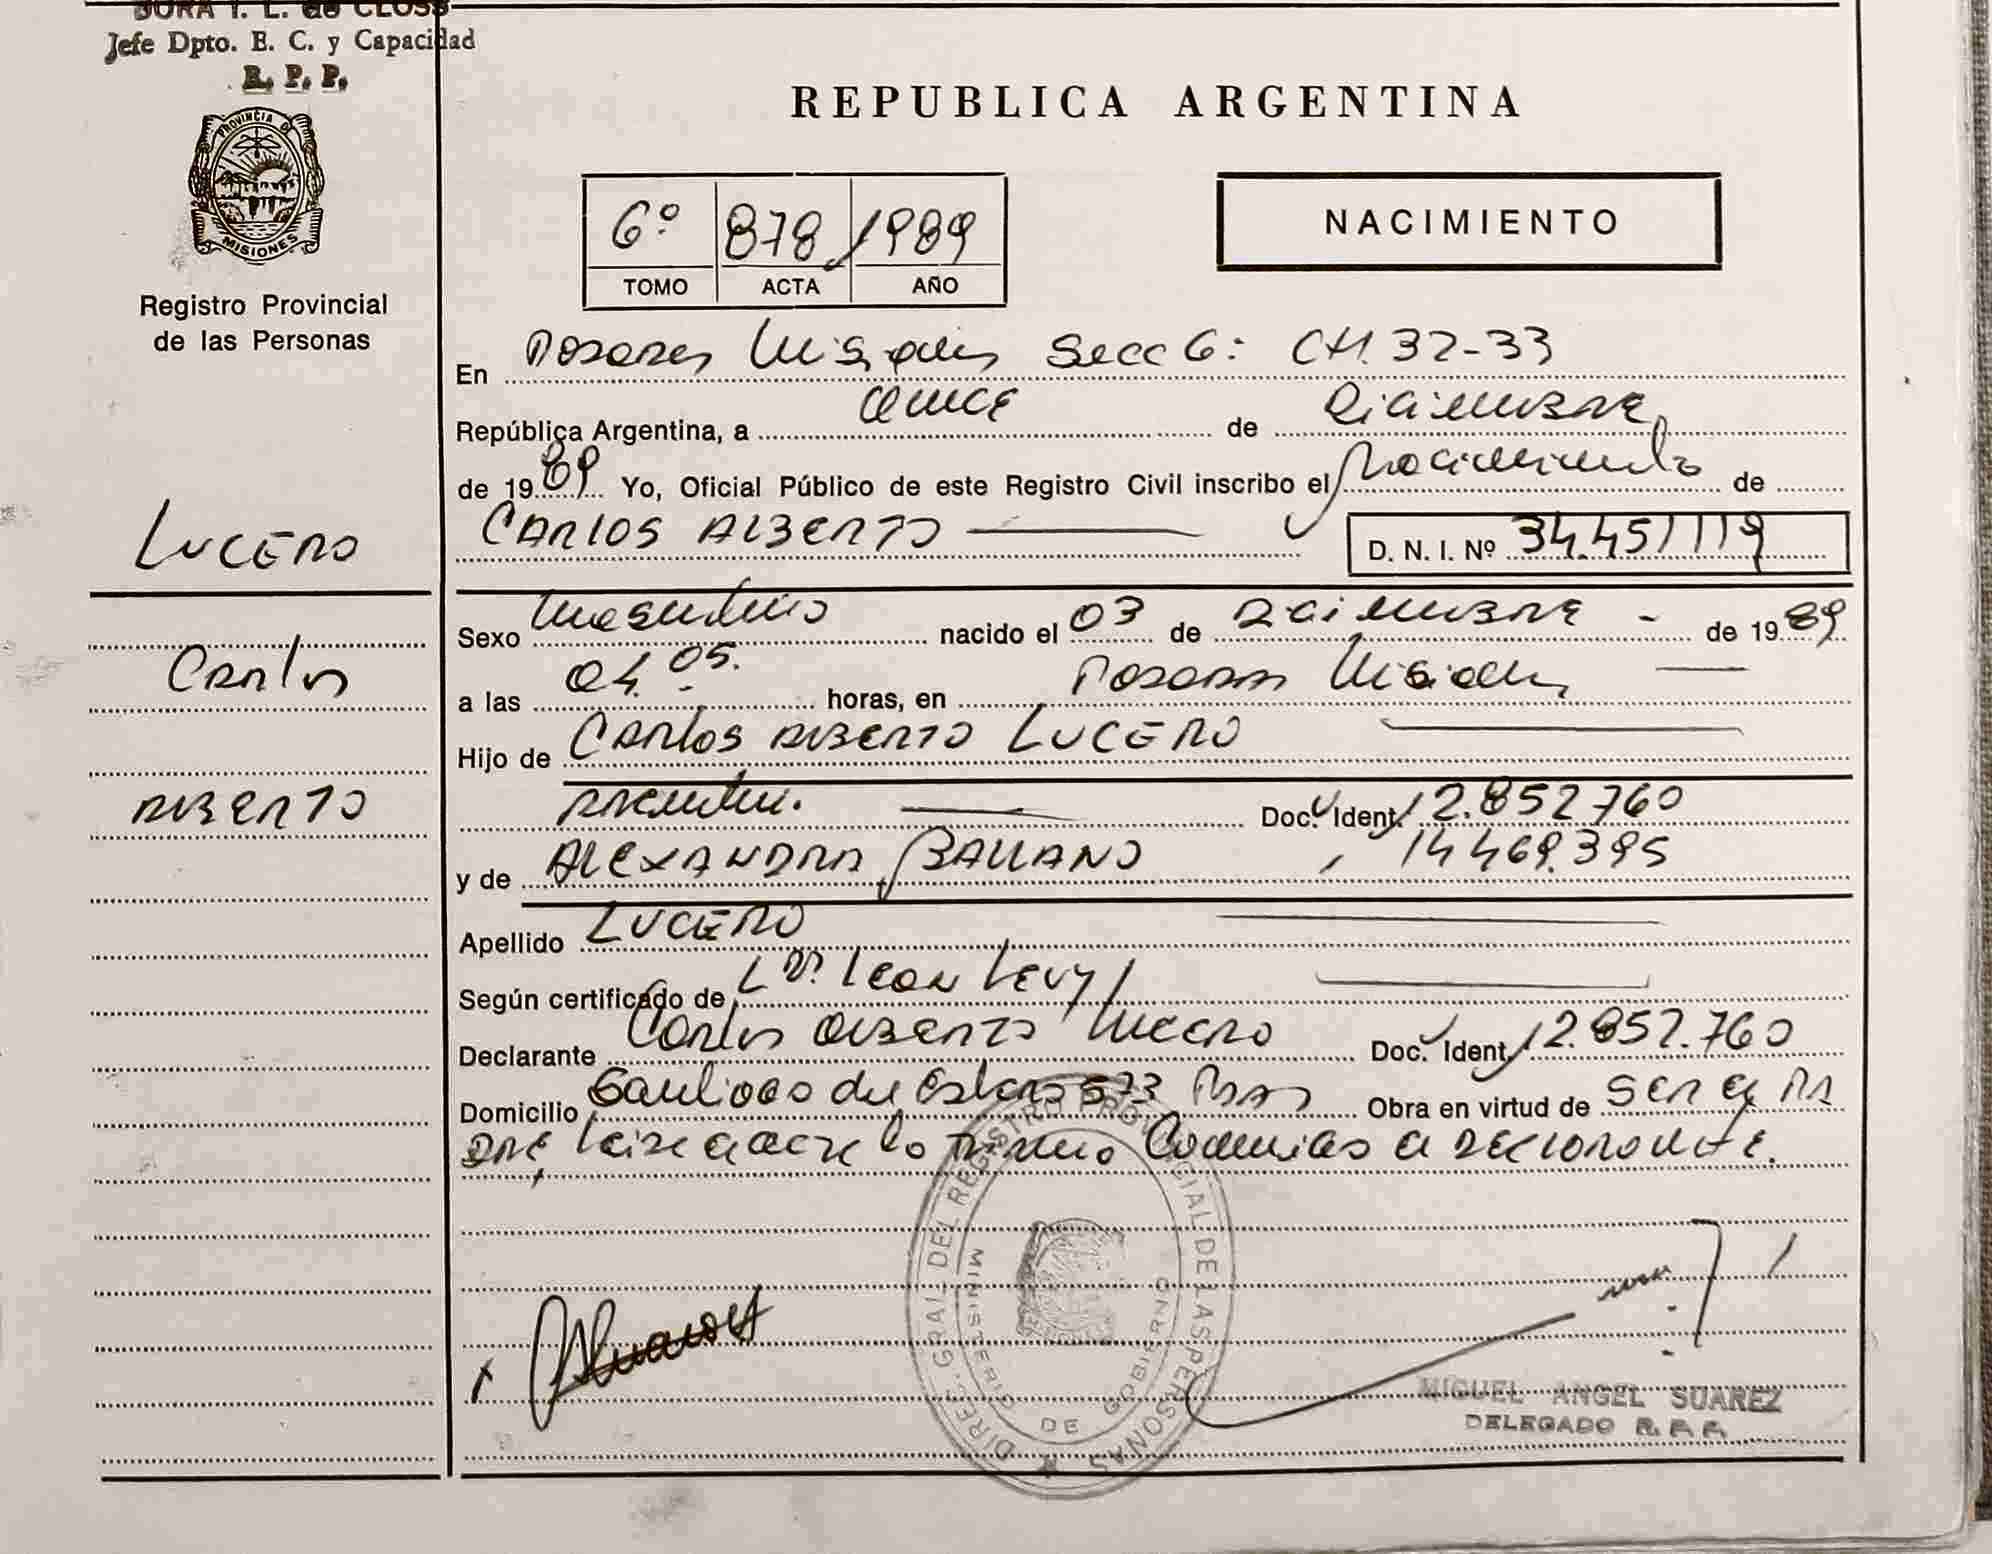 DORA I. L. de CLOSS
Jefe Dpto. E. C. y Capacidad
R. P. P.
PROVINCIA DE
MISIONES
Registro Provincial
de las Personas
LUCERO
Carlos
ALBERTO
REPUBLICA ARGENTINA
6º 878 1989
TOMO ACTA AÑO
NACIMIENTO
En Posadas Misiones Secc 6: CH. 32-33
República Argentina, a quince de Diciembre
de 1989 Yo, Oficial Público de este Registro Civil inscribo el Nacimiento de
CARLOS ALBERTO D. N. I. Nº 34.451119
Sexo Masculino nacido el 03 de Diciembre de 1989
a las 04.05. horas, en Posadas Misiones
Hijo de Carlos ALBERTO LUCERO
Doc. Ident. 12.852760
y de ALEXANDRA 14469.395
Apellido LUCERO
Según certificado de Leon Levy
Declarante Carlos ALBERTO Lucero Doc. Ident. 12.852.760
Domicilio Santiago del Estero 573 Obra en virtud de SER EL PA
DRE, Leida el acta lo firman Conmigo el DECLARANTE.
DIREC. GRAL. DEL REGISTRO PROVINCIAL DE LAS PERSONAS
MINISTERIO DE GOBIERNO
MIGUEL ANGEL SUAREZ
DELEGADO R. P. P.